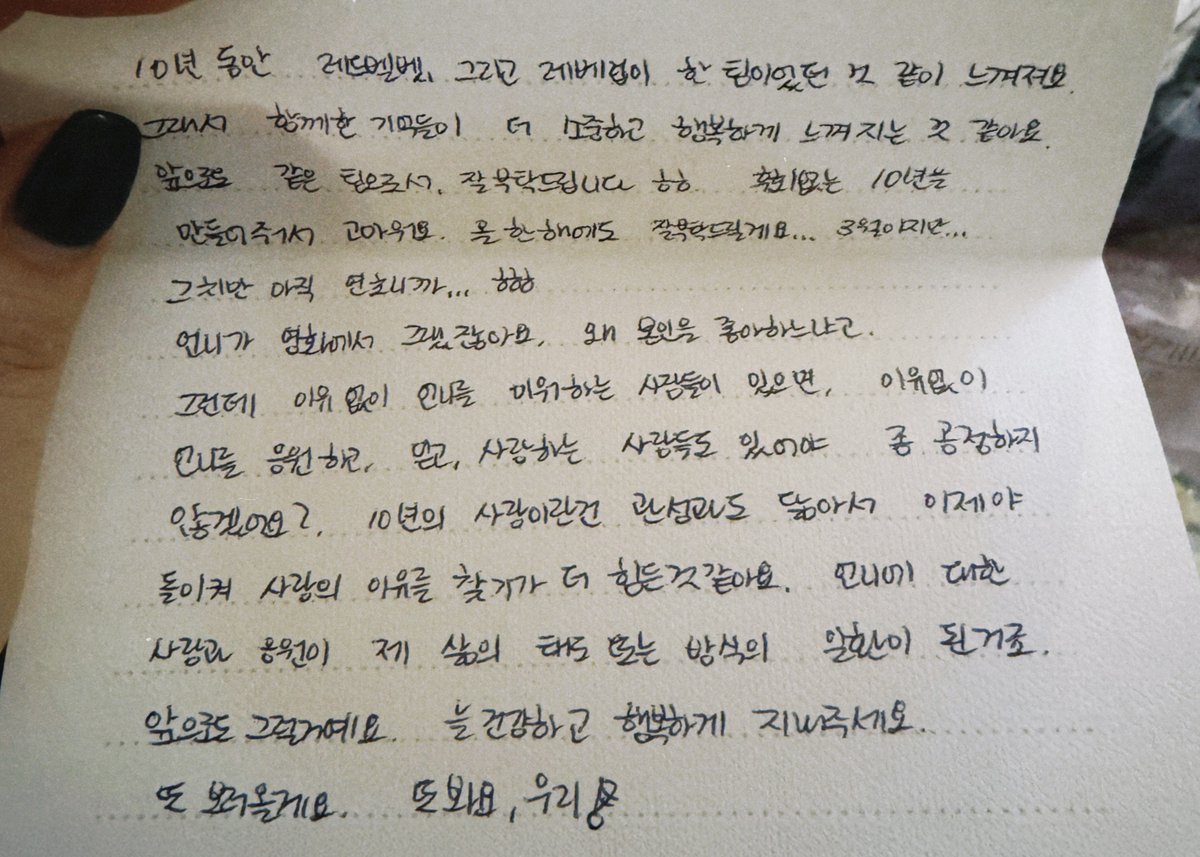 10년 동안 레드벨벳, 그리고 레베럽이 한 팀이었던 것 같이 느껴져요.
그래서 함께한 기억들이 더 소중하고 행복하게 느껴지는 것 같아요.
앞으로도 같은 팀으로서, 잘 부탁드립니다 ㅎㅎ 후회없는 10년을
만들어주셔서 고마워요. 올 한해에도 잘부탁드릴게요... 3월이지만...
그치만 아직 연초니까... ㅎㅎㅎ
언니가 영화에서 그랬잖아요, 왜 본인을 좋아하느냐고.
그런데 이유없이 언니를 미워하는 사람들이 있으면, 이유없이
언니를 응원하고, 믿고, 사랑하는 사람들도 있어야 좀 공정하지
않겠어요? 10년의 사랑이란건 관성과도 닮아서 이제야
돌이켜 사랑의 이유를 찾기가 더 힘든것같아요. 언니에 대한
사랑과 응원이 제 삶의 태도 또는 방식의 일환이 된거죠.
앞으로도 그럴거예요. 늘 건강하고 행복하게 지내주세요.
또 보러올게요. 또봐요, 우리